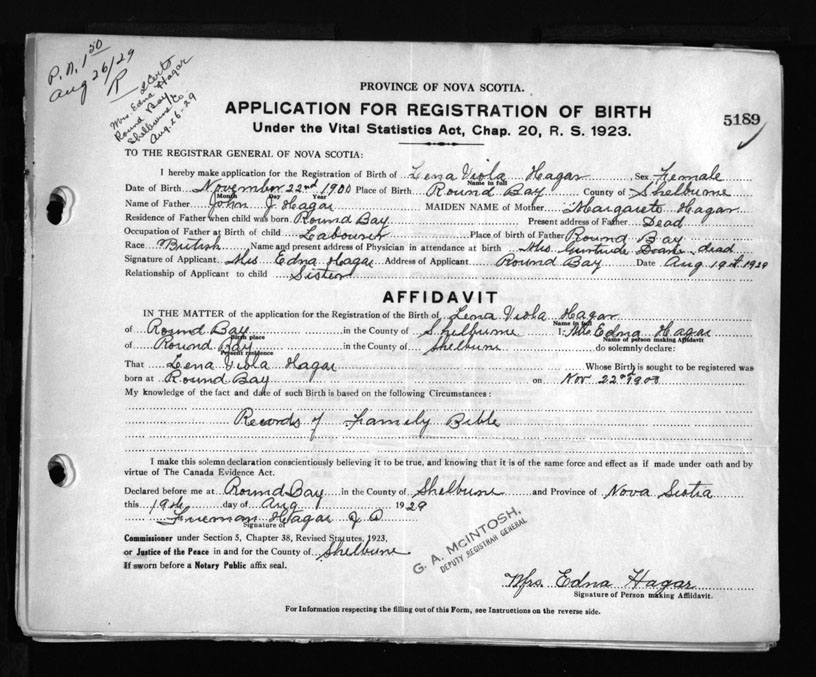 P.N. 1 50
Aug 26/29
R
2 Certs
Mrs Edna Hagar
Round Bay
Shelburne Co
Aug. 26-29
PROVINCE OF NOVA SCOTIA.
APPLICATION FOR REGISTRATION OF BIRTH
5189
Under the Vital Statistics Act, Chap. 20, R. S. 1923.
TO THE REGISTRAR GENERAL OF NOVA SCOTIA:
I hereby make application for the Registration of Birth of Lena Viola Hagar Sex Female
Name in full
Date of Birth November 22nd 1900 Place of Birth Round Bay County of Shelburne
Month Day Year
Name of Father John J Hagar MAIDEN NAME of Mother Margarete Hagar
Residence of Father when child was born Round Bay Present address of Father Dead
Occupation of Father at Birth of child Labourer Place of birth of Father Round Bay
Race British Name and present address of Physician in attendance at birth Mrs Gertrude Doane, dead
Signature of Applicant Mrs Edna Hagar Address of Applicant Round Bay Date Aug 19th 1929
Relationship of Applicant to child Sister
AFFIDAVIT
IN THE MATTER of the application for the Registration of the Birth of Lena Viola Hagar
Name in full
of Round Bay in the County of Shelburne I, Mrs Edna Hagar
Birth place Name of person making Affidavit
of Round Bay in the County of Shelburne do solemnly declare:
Present residence
That Lena Viola Hagar Whose Birth is sought to be registered was
born at Round Bay on Nov 22nd 1900
My knowledge of the fact and date of such Birth is based on the following Circumstances:
Records of Family Bible
I make this solemn declaration conscientiously believing it to be true, and knowing that it is of the same force and effect as if made under oath and by
virtue of The Canada Evidence Act.
Declared before me at Round Bay in the County of Shelburne and Province of Nova Scotia
this 19th day of Aug 1929
Freeman Hagar J.P.
Signature of
Commissioner under Section 5, Chapter 38, Revised Statutes, 1923,
or Justice of the Peace in and for the County of Shelburne
If sworn before a Notary Public affix seal.
G. A. McINTOSH,
DEPUTY REGISTRAR GENERAL
Mrs. Edna Hagar
Signature of Person making Affidavit.
For Information respecting the filling out of this Form, see Instructions on the reverse side.